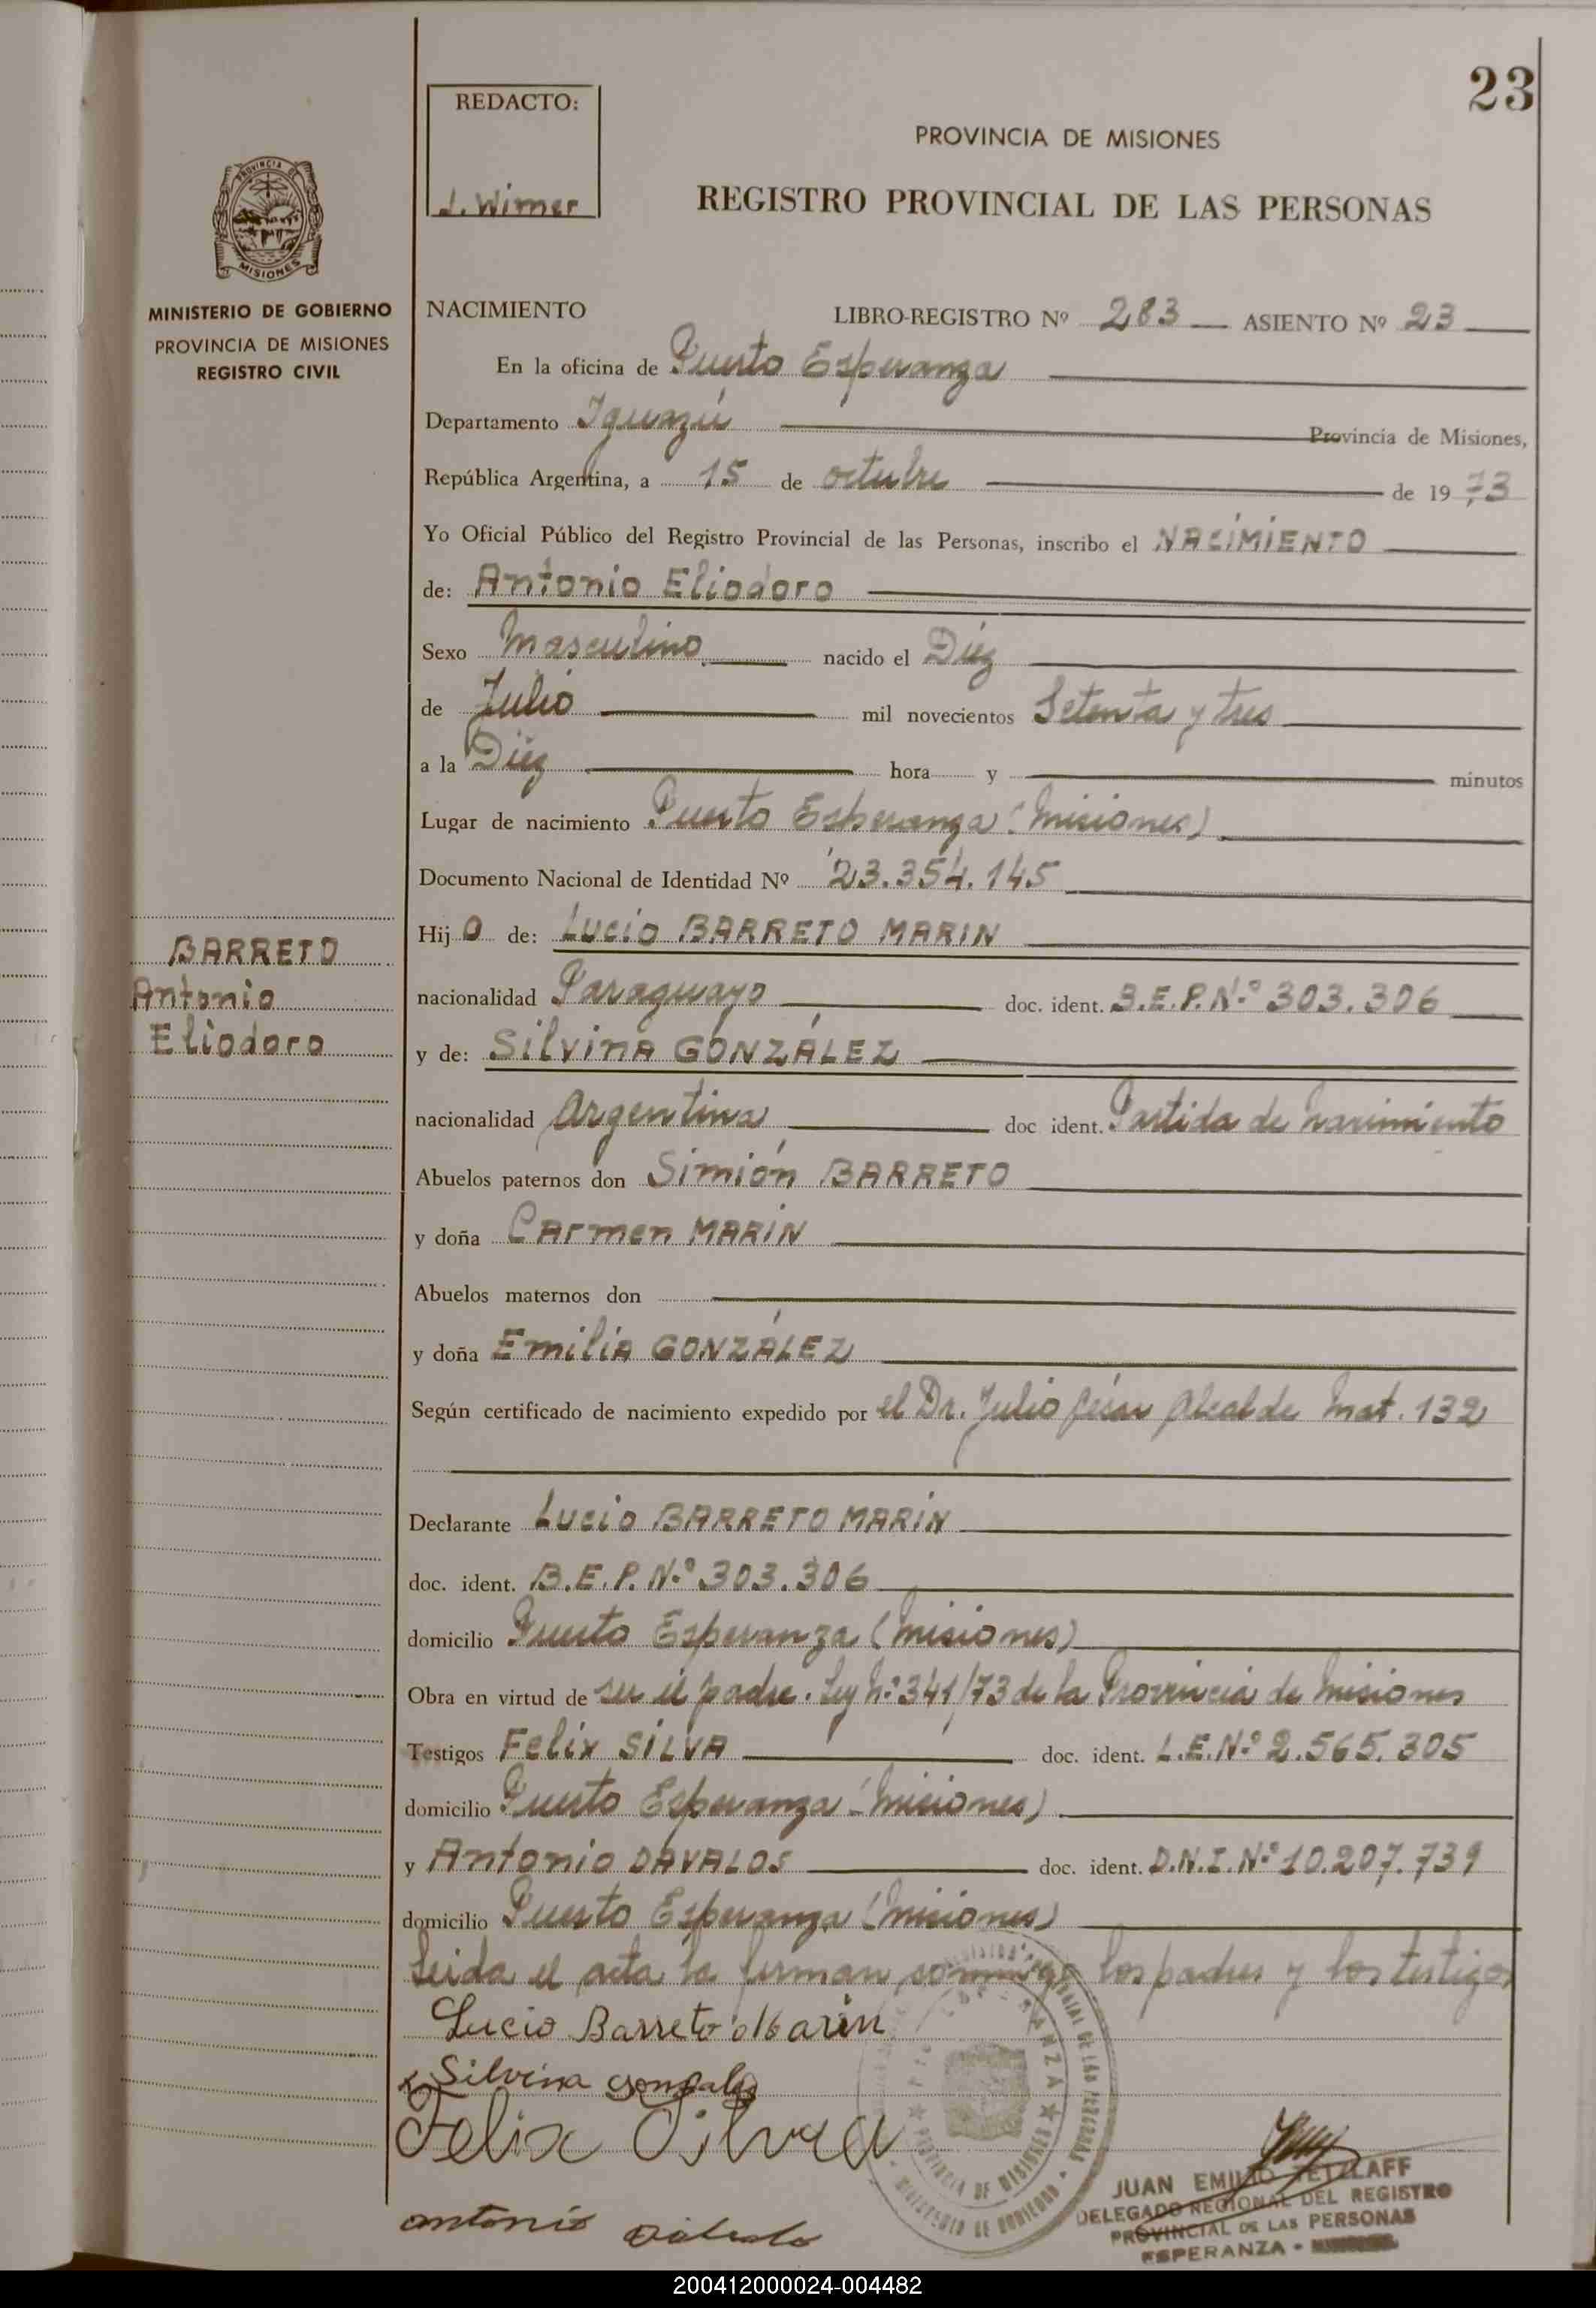 23
REDACTO:
J. Wirner
PROVINCIA DE MISIONES
REGISTRO PROVINCIAL DE LAS PERSONAS
PROVINCIA DE
MISIONES
MINISTERIO DE GOBIERNO
PROVINCIA DE MISIONES
REGISTRO CIVIL
NACIMIENTO LIBRO-REGISTRO Nº 283 ASIENTO Nº 23
En la oficina de Puerto Esperanza
Departamento Iguazú Provincia de Misiones,
República Argentina, a 15 de octubre de 1973
Yo Oficial Público del Registro Provincial de las Personas, inscribo el NACIMIENTO
de: Antonio Eliodoro
Sexo Masculino nacido el Diez
de Julio mil novecientos Setenta y tres
a la Diez hora y minutos
Lugar de nacimiento Puerto Esperanza (Misiones)
Documento Nacional de Identidad Nº 23.354.145
BARRETO
Antonio
Eliodoro
Hijo de: Lucio BARRETO MARIN
nacionalidad Paraguayo doc. ident. B.E.P.Nº 303.306
y de: Silvina GONZÁLEZ
nacionalidad Argentina doc. ident. Partida de nacimiento
Abuelos paternos don Simión BARRETO
y doña Carmen MARIN
Abuelos maternos don
y doña Emilia GONZÁLEZ
Según certificado de nacimiento expedido por el Dr. Julio César Alcalde Mat. 132
Declarante Lucio BARRETO MARIN
doc. ident. B.E.P.Nº 303.306
domicilio Puerto Esperanza (Misiones)
Obra en virtud de ser el padre. Ley Nº 341/73 de la Provincia de Misiones
Testigos Felix SILVA doc. ident. L.E.Nº 2.565.305
domicilio Puerto Esperanza (Misiones)
y Antonio DÁVALOS doc. ident. D.N.I.Nº 10.207.739
domicilio Puerto Esperanza (Misiones)
Leida el acta la firman conmigo los padres y los testigos
Lucio Barreto Marin
Silvina Gonzalez
Felix Silva
antonio
PROVINCIA DE MISIONES
MINISTERIO DE GOBIERNO
JUAN EMILIO TETZLAFF
DELEGADO REGIONAL DEL REGISTRO
PROVINCIAL DE LAS PERSONAS
ESPERANZA -
200412000024-004482